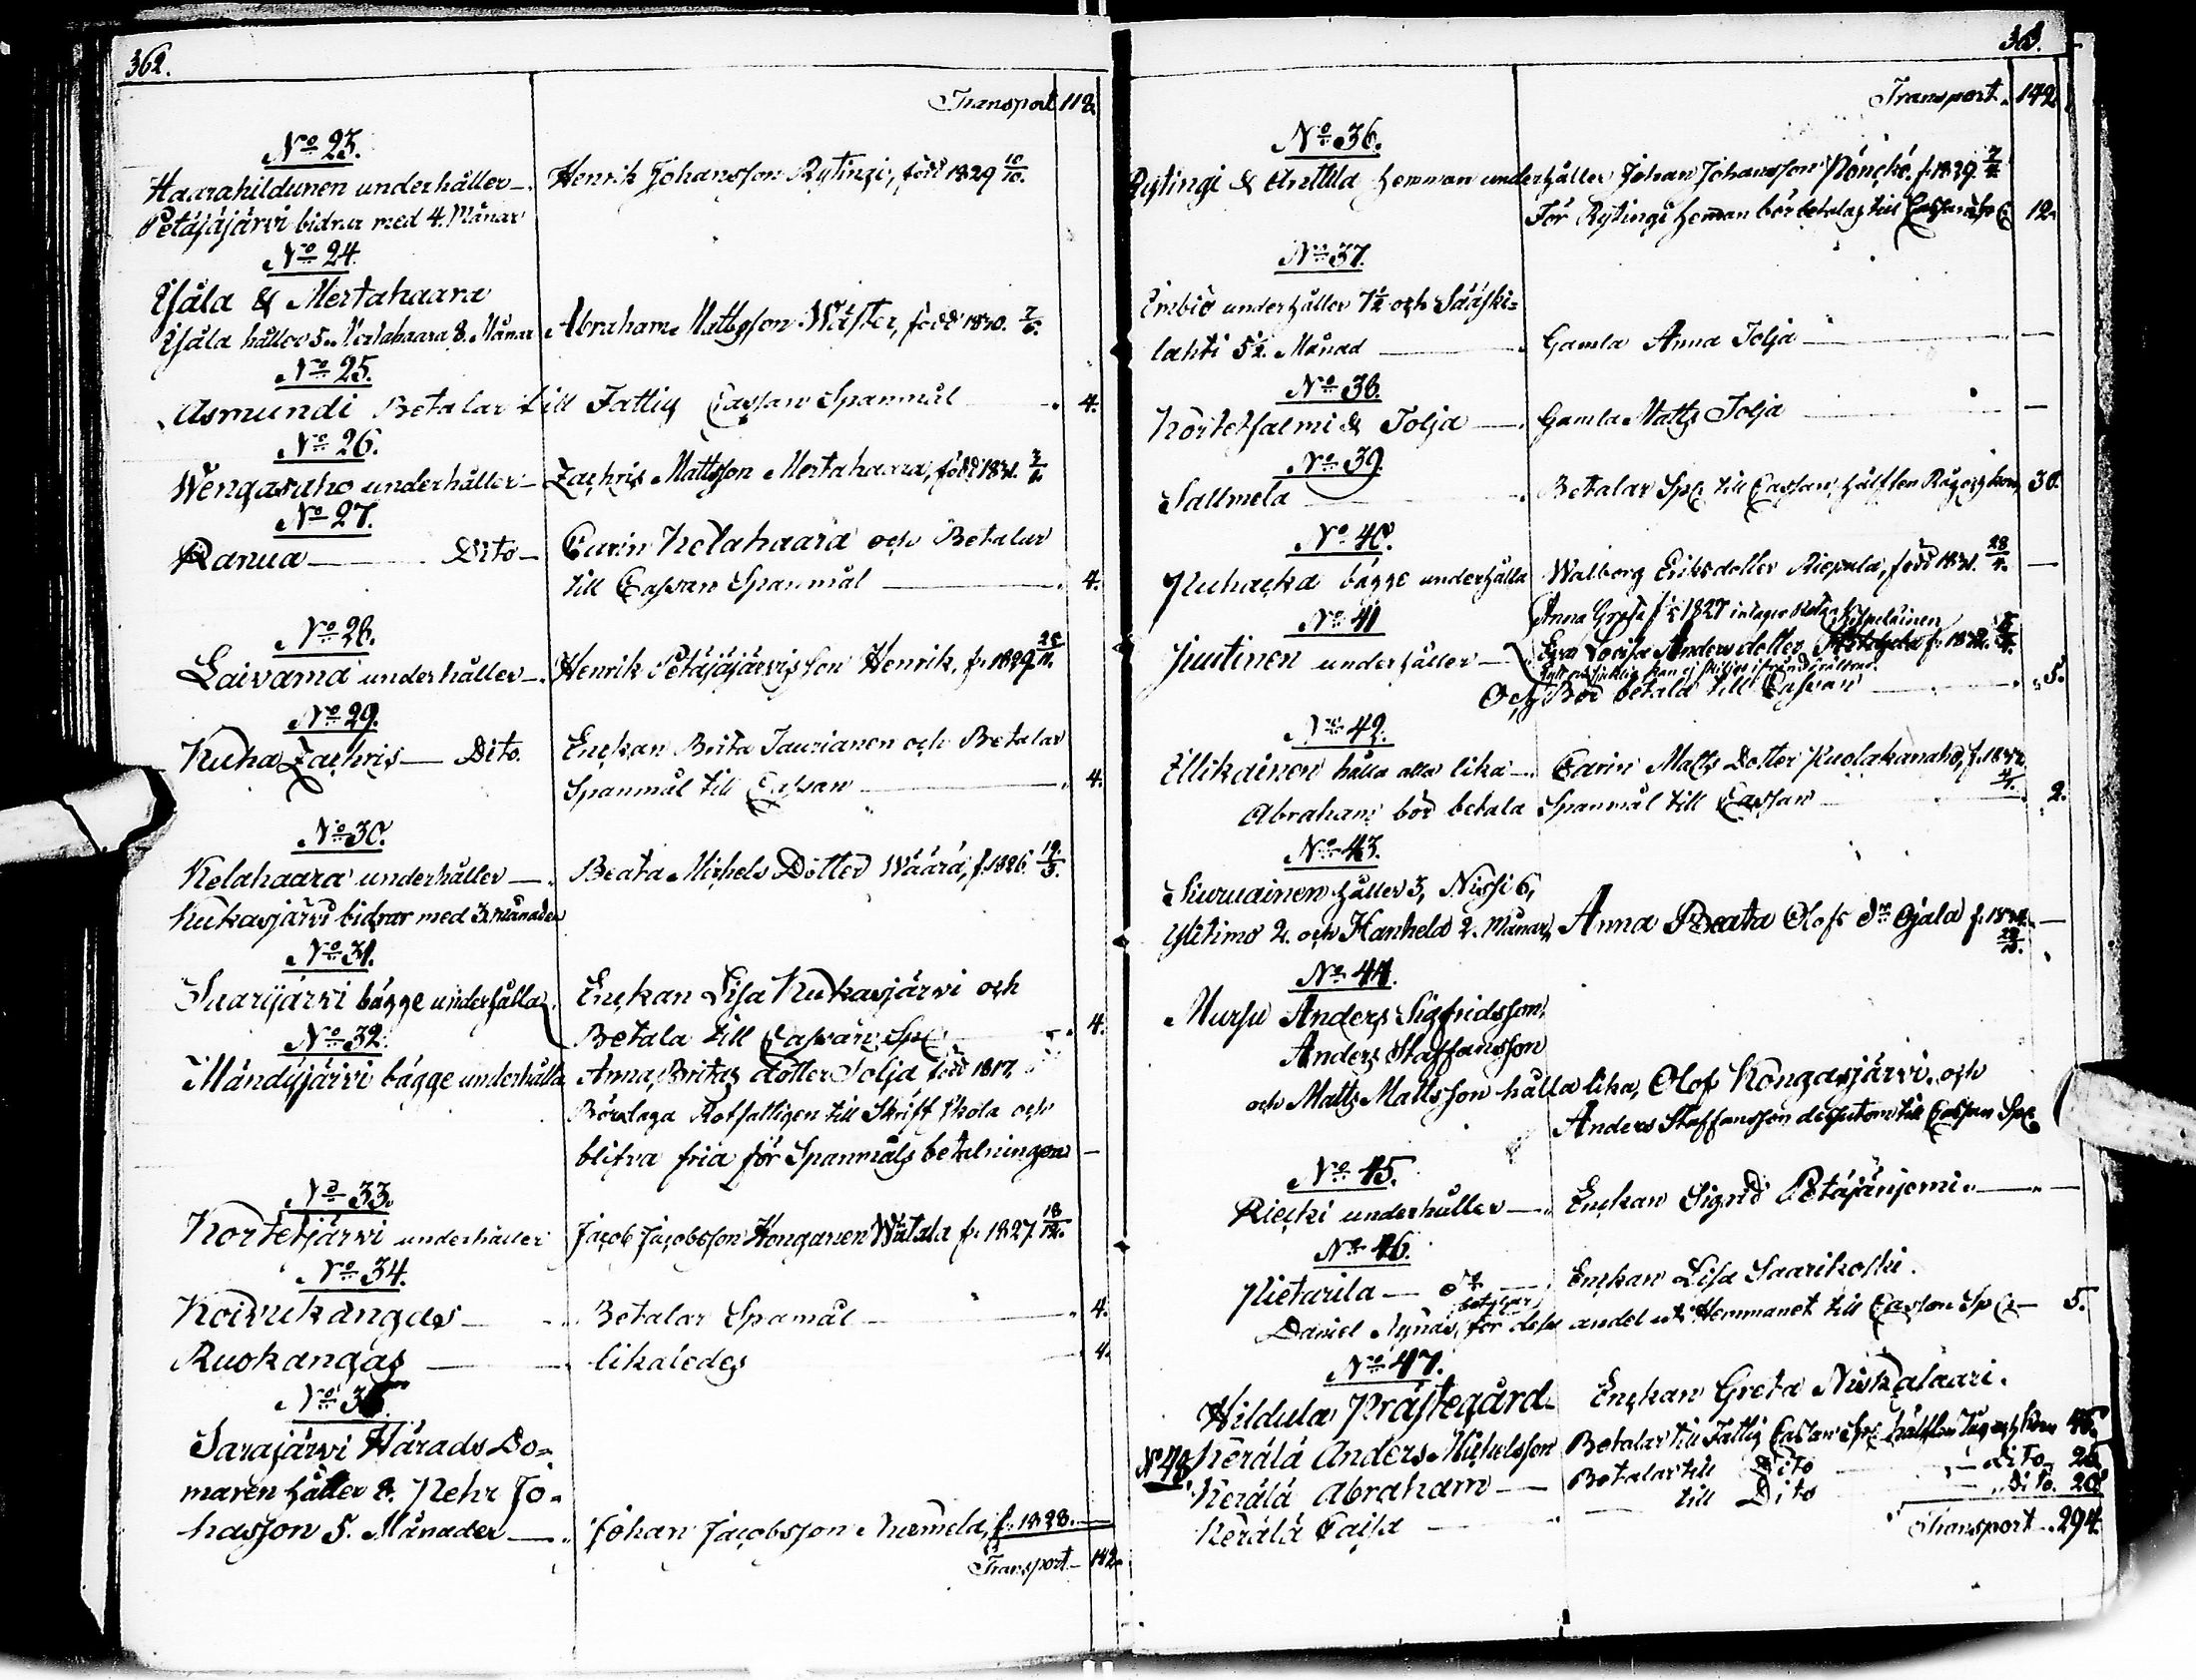 362.
Transport 118.
No 23.
Haarahildunen underhåller — Henrik Johansson Rytingi, född 1829 10/10.
Petäjäjärvi bidrar med 4. Månar
No 24.
Yjälä & Mertahaara
Yjälä håller 5. Mertahaara 8. Månar Abraham Mattsson Wäster, född 1830. 7/6.
No 25.
Asmundi Betalar till Fattig Cassan Spanmål — 4.
No 26.
Wengasaho underhåller — Zachris Mattsson Mertahaara, född 1831.
No 27.
Ranua — Dito — Carin Kelahaara och Betalar
till Cassan Spanmål — 4.
No 28.
Laivama underhåller — Henrik Petäjäjärvis son Henrik, f. 1829
No 29.
Kuha Zachris — Dito. Enckan Brita Taurianen och Betalar
Spanmål till Cassan — 4.
No 30.
Kelahaara underhåller — Beata Michels Dotter Wäärä, f. 1826 19/3.
Kukasjärvi bidrar med 3. månader
No 31.
Saarijärvi bägge underhålla Enckan Lisa Kukasjärvi och
Betala till Cassan Sp. — 4.
No 32.
Mändyjärvi bägge underhålla Anna Britas dotter Tolja född 1817.
Böra laga Rotfattigen till Skriftskola och
blifva fria för Spanmåls betalningen —
No 33.
Kortetjärvi underhåller Jacob Jacobsson Konganen Wätala f. 1827. 18/12.
No 34.
Koivukangas — Betalar Spamål — 4.
Ruokangas — likaledes — 4.
No 35
Sarajärvi Härads Do-
maren håller 8. Pehr Jo-
hasson 5. Månader — Johan Jacobsson f. 1828. —
Transport — 142.
363.
Transport. 142.
No 36.
Rytingi & Anttila hemman underhåller Johan Johansson Pönckö. f. 1829.
För Rytingi hemman bör betalas till Cassan Sp. 12.
No 37.
Embiö underhåller 7½ och Sääski-
lahti 5½. Månad — Gamla Anna Tolja —
No 38.
Kortetsalmi & Tolja — Gamla Matts Tolja —
No 39.
Sallmela — Betalar Sp. till Cassan, hälften Råg och korn, 30.
No 40.
Puhacka bägge underhålla Walborg Eriksdotter Riepula, född 1831. 28/4. —
No 41
Anna Greta f. 1827 intages
Juutinen underhåller — Eva Lovisa Anders dotter
Och Bör betala till Cassan — 5.
No 42.
Illikainen hålla alla lika — Carin Matts Dotter Kuolakanaho, f. 1832
Abraham bör betala Spanmål till Cassan — 2.
No 43.
Siuruainen håller 3, Nissi 6,
Ylitimo 2. och Hanhela 2. Månar, Anna Beata Olofs Dr Ojala f. —
No 44.
Mursu Anders Sigfridsson,
Anders Staffansson
och Matts Mattsson hålla lika, Olof Kongasjärvi. och
Anders Staffansson desutom till Cassan Sp.
No 45.
Riecki underhåller — Enckan Sigrid Petäjänjemi. —
No 46.
Pietarila — Do — Enckan Lisa Saarikoski.
betalar
Daniel för dess andel uti Hemmanet till Cassan Sp. — 5.
No 47.
Hildula Prästegård. Enckan Greta Niskalaari.
No 48 Kerälä Anders Michelsson Betalar till Fattig Cassan Sp. hälften råg och korn
Kerälä Abraham — Betalar till Dito — dito,
Kerälä Cajsa — till Dito — Dito. 20
Transport. 294.